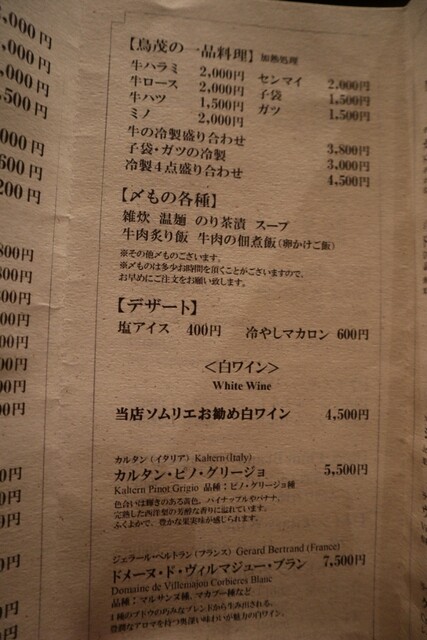 ,000円
,000円
,000円
,500円
000円
600円
200円
800円
【鳥茂の一品料理】加熱処理
牛ハラミ 2,000円 センマイ 2,000円
牛ロース 2,000円 子袋 1,500円
牛ハツ 1,500円 ガツ 1,500円
ミノ 2,000円
牛の冷製盛り合わせ 3,800円
子袋・ガツの冷製 3,000円
冷製4点盛り合わせ 4,500円
【〆もの各種】
雑炊 温麺 のり茶漬 スープ
牛肉炙り飯 牛肉の佃煮飯(卵かけご飯)
※その他〆ものございます。
※〆ものは多少お時間を頂くことがございますので、
お早めにご注文をお願い致します。
【デザート】
塩アイス 400円 冷やしマカロン 600円
<白ワイン>
White Wine
当店ソムリエお勧め白ワイン 4,500円
カルタン(イタリア) Kaltern(Italy)
カルタン・ピノ・グリージョ 5,500円
Kaltern Pinot Grigio 品種:ピノ・グリージョ種
色合いは輝きのある黄色。パイナップルやバナナ、
完熟した西洋梨の芳醇な香りに溢れています。
ふくよかで、豊かな果実味が感じられます。
ジェラール・ベルトラン(フランス) Gerard Bertrand (France)
ドメーヌ・ド・ヴィルマジュー・ブラン 7,500円
Domaine de Villemajou Corbieres Blanc
品種:マルサンヌ種、マカブー種など
種のブドウの巧みなブレンドから生み出される。
豊潤なアロマを持つ奥深い味わいが魅力の白ワイン。